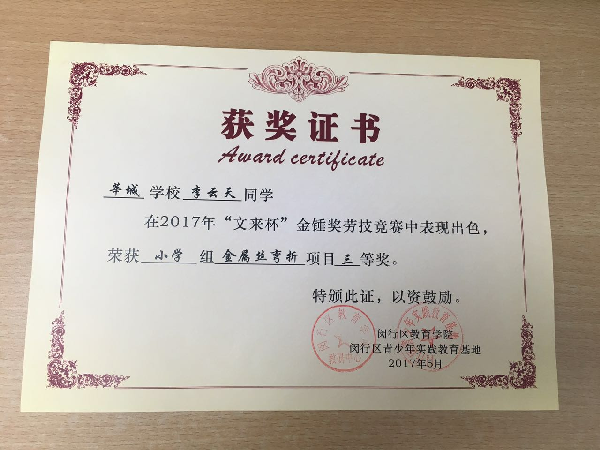 获奖证书
Award certificate
莘城 学校 李云天 同学
在2017年“文来杯”金锤奖劳技竞赛中表现出色，
荣获 小学 组 金属丝弯折 项目 三 等奖。
特颁此证，以资鼓励。
闵行区教育学院
闵行区青少年实践教育基地
2017年5月